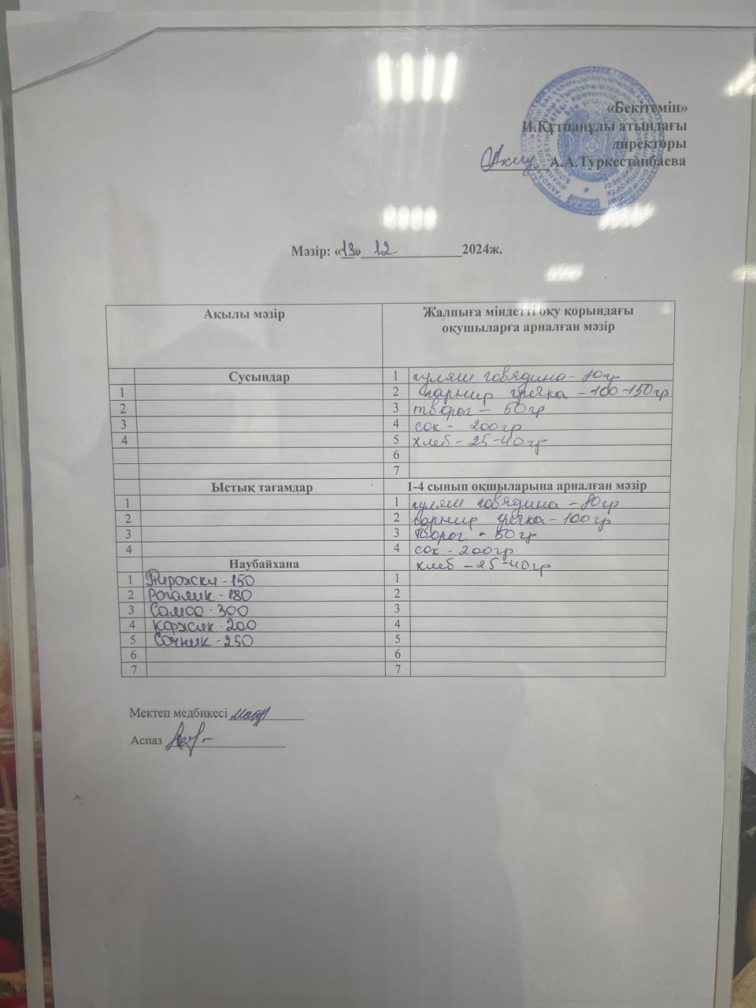 «Бекітемін»
И.Құтпанұлы атындағы
директоры
А.А.Туркестанбаева
Мәзір: «13» 12 2024ж.
Ақылы мәзір
Жалпыға міндетті оқу қорындағы
оқушыларға арналған мәзір
Сусындар
1 гуляш говядина - 80гр
1
2 гарнир гречка - 100-150гр
2
3 творог - 50гр
3
4 сок - 200гр
4
5 хлеб - 25-40гр
6
7
Ыстық тағамдар
1-4 сынып оқшыларына арналған мәзір
1
1 гуляш говядина - 80гр
2
2 гарнир гречка - 100гр
3
3 творог - 50гр
4
4 сок - 200гр
Наубайхана
хлеб - 25-40гр
1 Пирожки - 150
1
2 Рогалик - 180
2
3 Самса - 300
3
4 Коржик - 200
4
5 Сочник - 250
5
6
6
7
7
Мектеп медбикесі
Аспаз